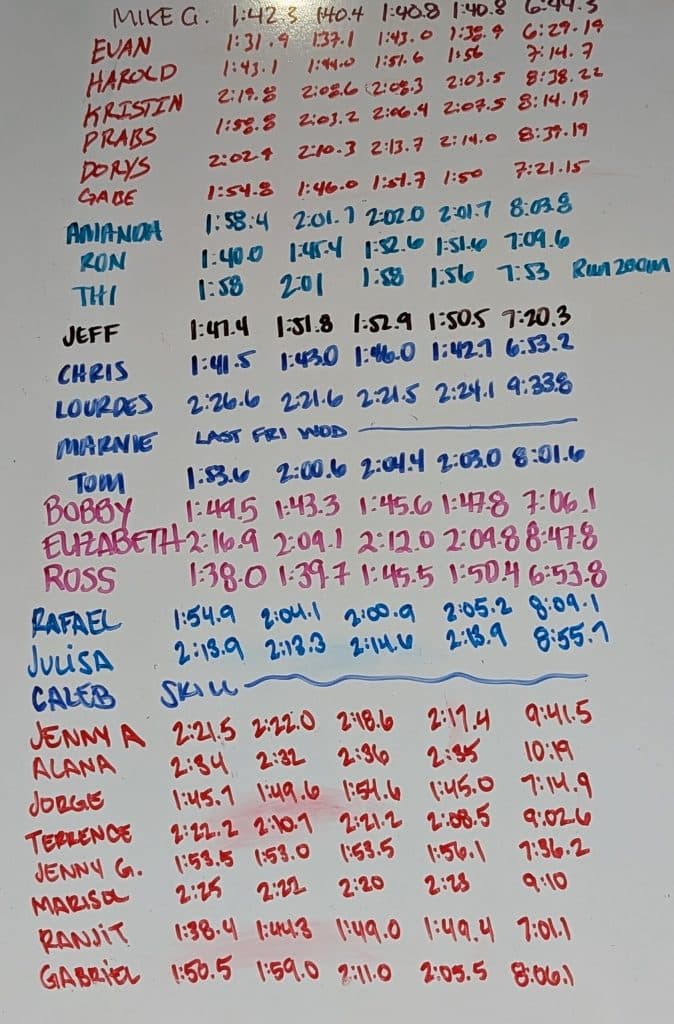 MIKE G. 1:42.3 1:40.4 1:40.8 1:40.8 6:44.3
EVAN 1:31.9 1:37.1 1:43.0 1:38.9 6:29.19
HAROLD 1:43.1 1:44.0 1:51.6 1:56 7:14.7
KRISTIN 2:19.8 2:08.6 2:08.3 2:03.5 8:38.22
PRABS 1:58.8 2:03.2 2:06.4 2:07.5 8:14.19
DORYS 2:02.9 2:10.3 2:13.7 2:14.0 8:39.19
GABE 1:54.8 1:46.0 1:51.7 1:50 7:21.15
AMANDA 1:58.4 2:01.7 2:02.0 2:01.7 8:03.8
RON 1:40.0 1:45.4 1:52.6 1:51.6 7:09.6
THI 1:58 2:01 1:58 1:56 7:53 Run 200m
JEFF 1:47.4 1:51.8 1:52.9 1:50.5 7:20.3
CHRIS 1:41.5 1:43.0 1:46.0 1:42.7 6:53.2
LOURDES 2:26.6 2:21.6 2:21.5 2:24.1 9:33.8
MARNIE LAST FRI WOD
TOM 1:53.6 2:00.6 2:04.4 2:03.0 8:01.6
BOBBY 1:49.5 1:43.3 1:45.6 1:47.8 7:06.1
ELIZABETH 2:16.9 2:09.1 2:12.0 2:09.8 8:47.8
ROSS 1:38.0 1:39.7 1:45.5 1:50.4 6:53.8
RAFAEL 1:54.9 2:04.1 2:00.9 2:05.2 8:09.1
JULISA 2:13.9 2:13.3 2:14.6 2:13.9 8:55.7
CALEB SKILL
JENNY A 2:21.5 2:22.0 2:18.6 2:17.4 9:41.5
ALANA 2:34 2:32 2:36 2:35 10:19
JORGE 1:45.7 1:49.6 1:54.6 1:45.0 7:14.9
TERRENCE 2:22.2 2:10.7 2:21.2 2:08.5 9:02.6
JENNY G. 1:53.5 1:53.0 1:53.5 1:56.1 7:36.2
MARISOL 2:25 2:22 2:20 2:23 9:10
RANJIT 1:38.4 1:44.3 1:49.0 1:49.4 7:01.1
GABRIEL 1:50.5 1:59.0 2:11.0 2:05.5 8:06.1